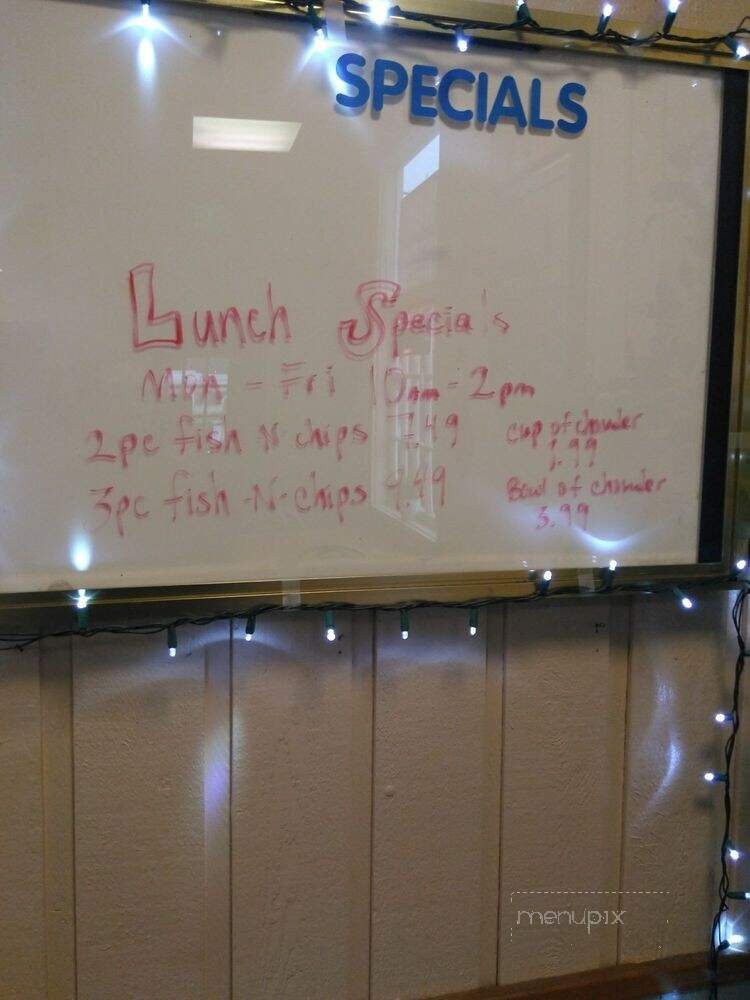 SPECIALS
Lunch Specials
Mon - Fri 10am - 2pm
2pc fish N chips 7.49
cup of chowder
1.99
3pc fish -N- chips 9.49
Bowl of chowder
3.99
menupix